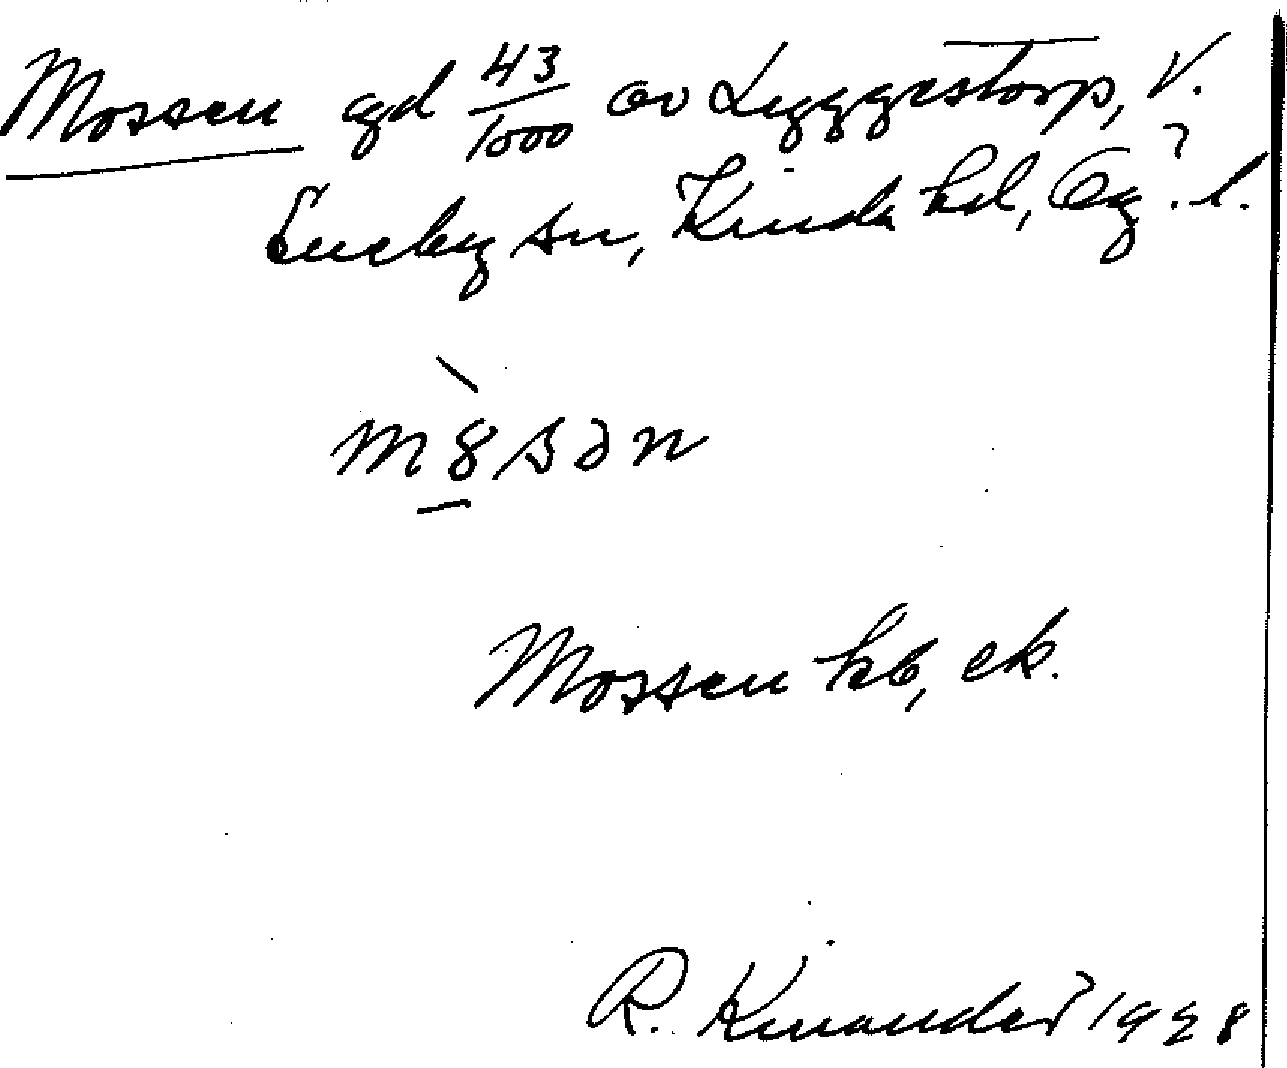 Mossen gd 43/1000 av Liggestorp, V.
Eneby sn, Kinda hd, Ög. l.
m8sən
Mossen kb, ek.
R. Kinander 1928